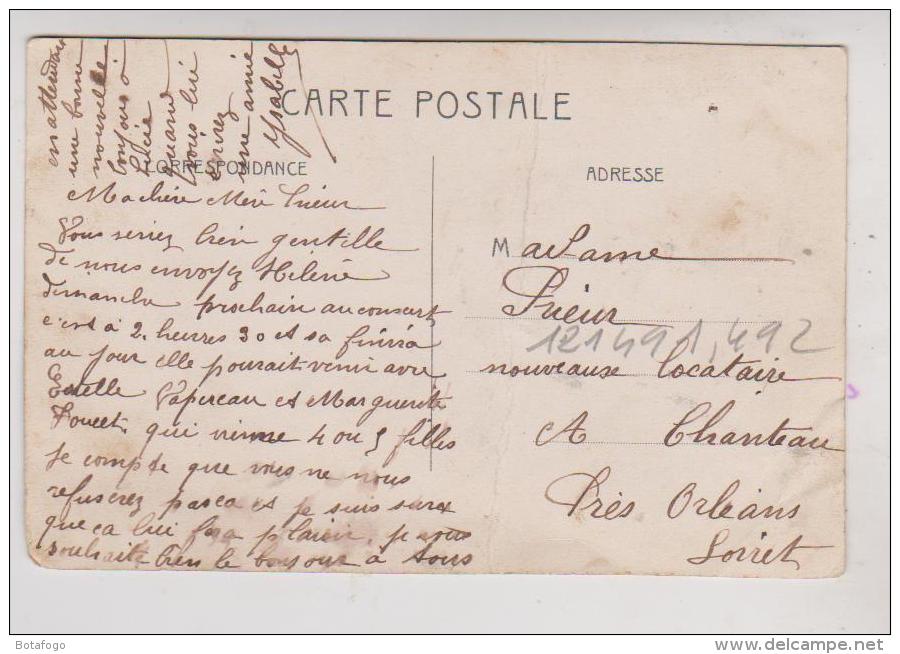 CARTE POSTALE
CORRESPONDANCE
Ma chère Mère Prieur
Vous seriez bien gentille
de nous envoyez Hélène
dimanche prochain au concert
c'est à 2. heures 30 et sa finira
au jour elle pourait venir avec
Estelle Papereau et Marguerite
Foucet, qui vienne 4 ou 5 filles
je compte que vous ne nous
refuserez pas ca et je suis sure
que ça lui fera plaisir, je vous
souhaite bien le bonjour à tous
en attendant
une bonne
nouvelle
bonjour à
Lucie
quand
vous lui
serez
une amie
Ysabelle
ADRESSE
Madame
Prieur
121491,492
nouveause locataire
A Chanteau
Près Orléans
Loiret
Botafogo
www.delcampe.net